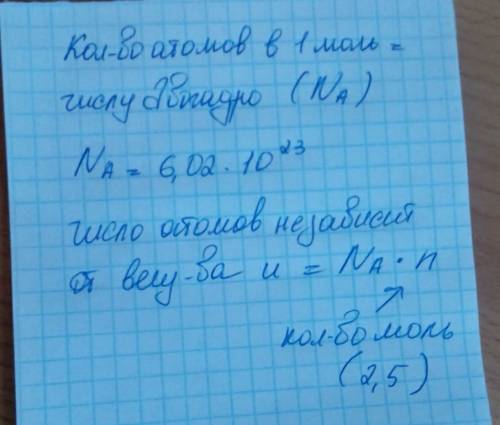 Кол-во атомов в 1 моль =
числу Авогадро (NA)
NA = 6,02 · 10²³
число атомов независит
от вещ-ва и = NA · n
кол-во моль
(2,5)